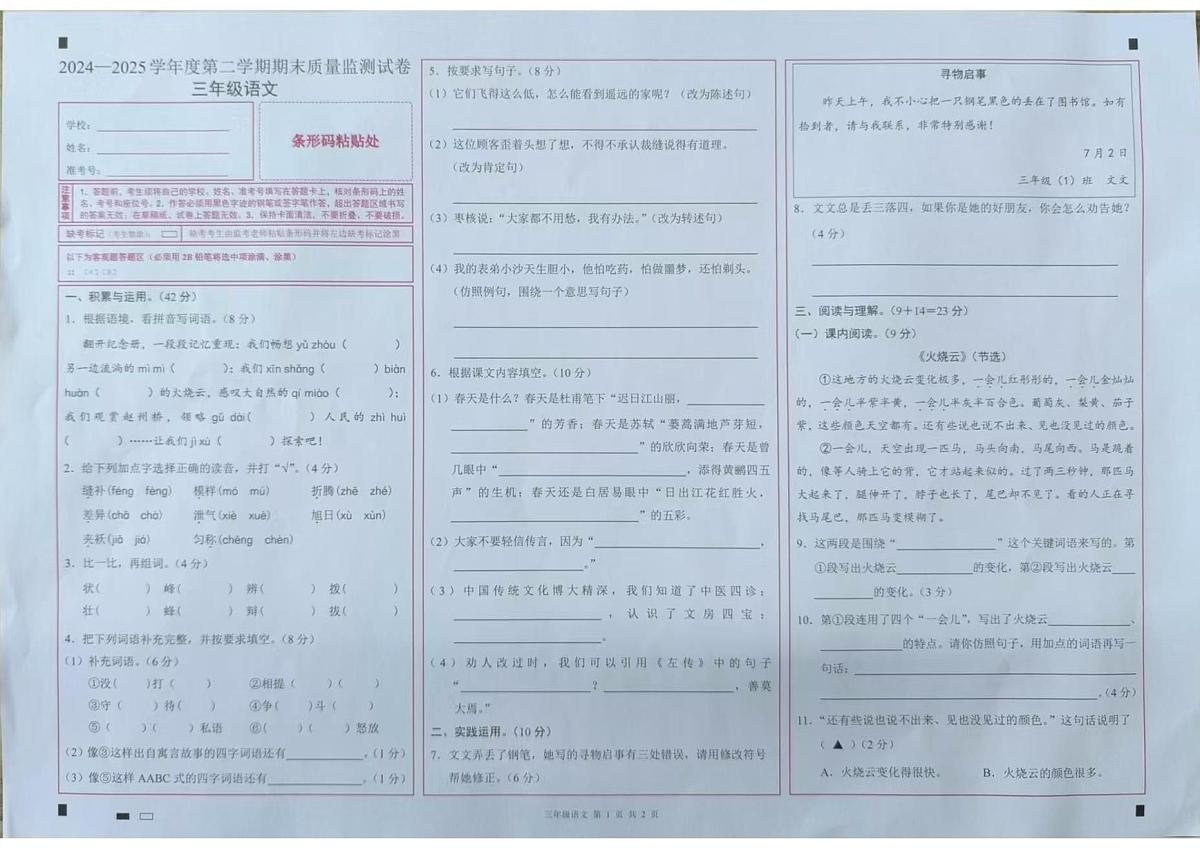 2024—2025学年度第二学期期末质量监测试卷
三年级语文
学校：
姓名：
准考号：
条形码粘贴处
注意事项
1．答题前，考生须将自己的学校、姓名、准考号填写在答题卡上，核对条形码上的姓
名、考号和座位号。2．作答必须用黑色字迹的钢笔或签字笔作答，超出答题区域书写
的答案无效；在草稿纸、试卷上答题无效。3．保持卡面清洁，不要折叠、不要破损。
缺考标记 缺考考生由监考老师粘贴条形码并将左边缺考标记涂黑
以下为客观题答题区（必须用2B铅笔将选中项涂满、涂黑）
11 [A] [B]
一、积累与运用。（42分）
1．根据语境，看拼音写词语。（8分）
翻开纪念册，一段段记忆重现：我们畅想yǔ zhòu（ ）
另一边流淌的mì mì（ ）；我们xīn shǎng（ ）biàn
huàn（ ）的火烧云，感叹大自然的qí miào（ ）；
我们观赏赵州桥，领略gǔ dài（ ）人民的zhì huì
（ ）……让我们jì xù（ ）探索吧！
2．给下列加点字选择正确的读音，并打“√”。（4分）
缝补(féng fèng) 模样(mó mú) 折腾(zhē zhé)
差异(chā chà) 泄气(xiè xuè) 旭日(xù xùn)
夹袄(jiā jiá) 匀称(chēng chèn)
3．比一比，再组词。（4分）
状（ ） 峰（ ） 辨（ ） 拨（ ）
壮（ ） 蜂（ ） 辩（ ） 拔（ ）
4．把下列词语补充完整，并按要求填空。（8分）
（1）补充词语。（6分）
①没（ ）打（ ） ②相提（ ）（ ）
③守（ ）待（ ） ④争（ ）斗（ ）
⑤（ ）（ ）私语 ⑥（ ）（ ）怒放
（2）像③这样出自寓言故事的四字词语还有____________。（1分）
（3）像⑤这样AABC式的四字词语还有____________。（1分）
5．按要求写句子。（8分）
（1）它们飞得这么低，怎么能看到遥远的家呢？（改为陈述句）
（2）这位顾客歪着头想了想，不得不承认裁缝说得有道理。
（改为肯定句）
（3）枣核说：“大家都不用愁，我有办法。”（改为转述句）
（4）我的表弟小沙天生胆小，他怕吃药，怕做噩梦，还怕剃头。
（仿照例句，围绕一个意思写句子）
6．根据课文内容填空。（10分）
（1）春天是什么？春天是杜甫笔下“迟日江山丽，____________
____________”的芳香；春天是苏轼“蒌蒿满地芦芽短，
____________”的欣欣向荣；春天是曾
几眼中“____________，添得黄鹂四五
声”的生机；春天还是白居易眼中“日出江花红胜火，
____________”的五彩。
（2）大家不要轻信传言，因为“____________，
____________。”
（3）中国传统文化博大精深，我们知道了中医四诊：
____________，认识了文房四宝：
____________。
（4）劝人改过时，我们可以引用《左传》中的句子
“____________？____________，善莫
大焉。”
二、实践运用。（10分）
7．文文弄丢了钢笔，她写的寻物启事有三处错误，请用修改符号
帮她修正。（6分）
三年级语文 第 1 页 共 2 页
寻物启事
昨天上午，我不小心把一只钢笔黑色的丢在了图书馆。如有
拾到者，请与我联系，非常特别感谢！
7月2日
三年级（1）班 文文
8．文文总是丢三落四，如果你是她的好朋友，你会怎么劝告她？
（4分）
三、阅读与理解。（9＋14＝23分）
（一）课内阅读。（9分）
《火烧云》（节选）
①这地方的火烧云变化极多，一会儿红彤彤的，一会儿金灿灿
的，一会儿半紫半黄，一会儿半灰半百合色。葡萄灰、梨黄、茄子
紫，这些颜色天空都有。还有些说也说不出来、见也没见过的颜色。
②一会儿，天空出现一匹马，马头向南，马尾向西。马是跪着
的，像等人骑上它的背，它才站起来似的。过了两三秒钟，那匹马
大起来了，腿伸开了，脖子也长了，尾巴却不见了。看的人正在寻
找马尾巴，那匹马变模糊了。
9．这两段是围绕“____________”这个关键词语来写的。第
①段写出火烧云____________的变化，第②段写出火烧云____
____________的变化。（3分）
10．第①段连用了四个“一会儿”，写出了火烧云____________、
____________的特点。请你仿照句子，用加点的词语再写一
句话：____________
____________。（4分）
11．“还有些说也说不出来、见也没见过的颜色。”这句话说明了
（ ▲ ）（2分）
A．火烧云变化得很快。 B．火烧云的颜色很多。